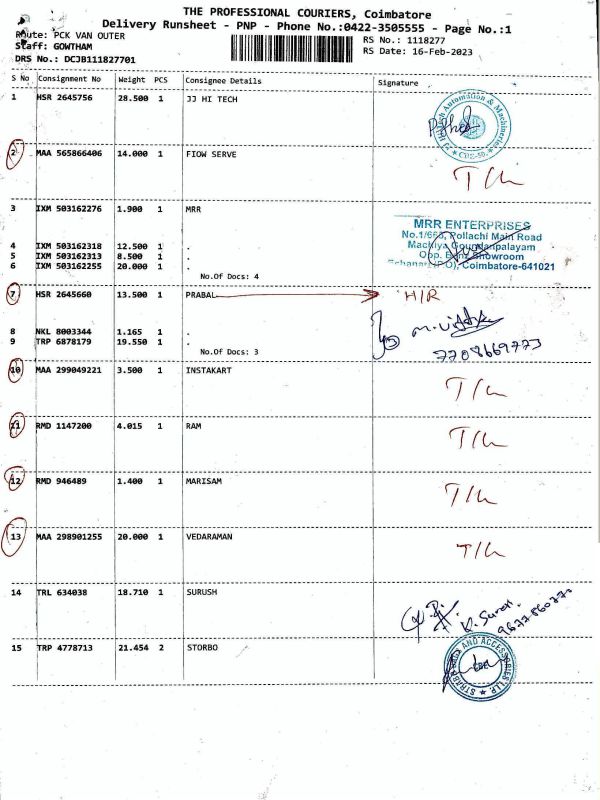 THE PROFESSIONAL COURIERS, Coimbatore
Delivery Runsheet - PNP - Phone No.:0422-3505555 - Page No.:1
Route: PCK VAN OUTER
RS No.: 1118277
Staff: GOWTHAM
RS Date: 16-Feb-2023
DRS No.: DCJB111827701
S No Consignment No Weight PCS Consignee Details Signature
1 HSR 2645756 28.500 1 JJ HI TECH
2 MAA 565866406 14.000 1 FIOW SERVE
T/L
3 IXM 503162276 1.900 1 MRR
MRR ENTERPRISES
No.1/663, Pollachi Main Road
Machiya Goundanpalayam
4 IXM 503162318 12.500 1 .
5 IXM 503162313 8.500 1 .
Opp. Benz Showroom
6 IXM 503162255 20.000 1 .
(P.O), Coimbatore-641021
No.Of Docs: 4
7 HSR 2645660 13.500 1 PRABAL H/R
8 NKL 8003344 1.165 1 .
9 TRP 6878179 19.550 1 .
7708669773
No.Of Docs: 3
10 MAA 299049221 3.500 1 INSTAKART
T/L
11 RMD 1147200 4.015 1 RAM
T/L
12 RMD 946489 1.400 1 MARISAM
T/L
13 MAA 298901255 20.000 1 VEDARAMAN
T/L
14 TRL 634038 18.710 1 SURUSH
15 TRP 4778713 21.454 2 STORBO